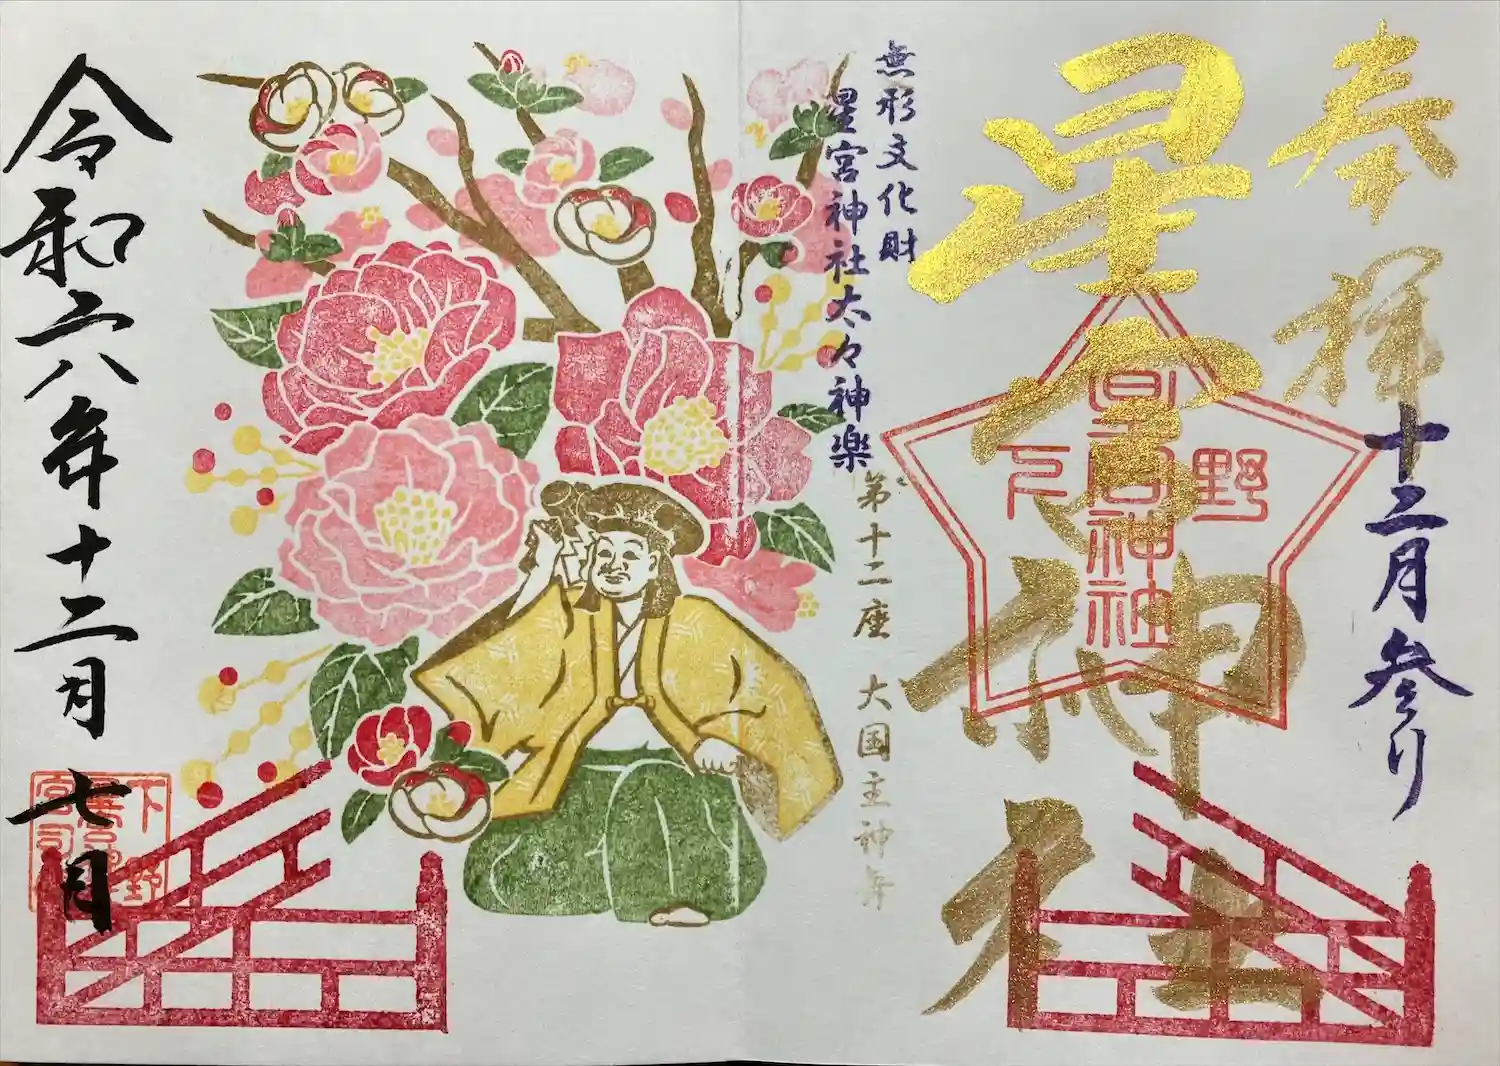 奉拝
十二月参り
星宮神社
星宮神社
下野
無形文化財
星宮神社太々神楽
第十二座 大国主神舞
令和六年十二月七日
下野